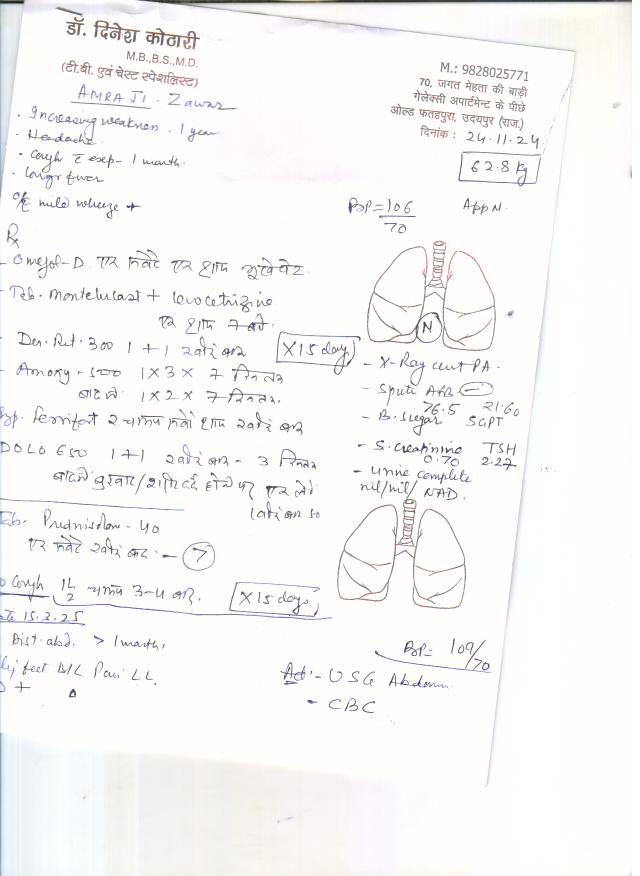 डॉ. दिनेश कोठारी
M.B.,B.S.,M.D.
(टी.बी. एवं चेस्ट स्पेशलिस्ट)
M.: 9828025771
70, जगत मेहता की बाड़ी
गेलेक्सी अपार्टमेन्ट के पीछे
ओल्ड फतहपुरा, उदयपुर (राज.)
दिनांक : 24.11.24
AMRA JI. Zawar
62.8 kg
. Increasing weakness. 1 year
. Headache
. Cough c exep- 1 month.
fever
O/E mild wheeze +
BP = 106/70
App N.
Rx
- Omejol-D. एक सवेरे एक शाम भूखे पेट.
- Tab. Montelucast + Levocetrizine
एक शाम
300 1+1 खाने के बाद
X 15 days
N
- 500 1 X 3 X 7 दिन तक
बाद में 1 X 2 X 7 दिन तक.
2 चम्मच सवेरे शाम खाने के बाद
DOLO 650 1+1 खाने के बाद - 3 दिन तक
बाद में बुखार/ दर्द होने पर एक लेवे
- X-Ray chest PA.
- Sputum AFB -
76.5 21.60
- B. Sugar SGPT
- S. creatinine TSH
0.70 2.27
- Urine complete
nil/nil/ NAD.
Tab. Prednisolone - 40
एक सवेरे खाने के बाद - 7
Cough 1½ चम्मच 3-4 बार.
X 15 days
15.3.25
Dist. abd. > 1 month.
feet B/L Pain LL.
BP = 109/70
Ad: - USG Abdomen
- CBC